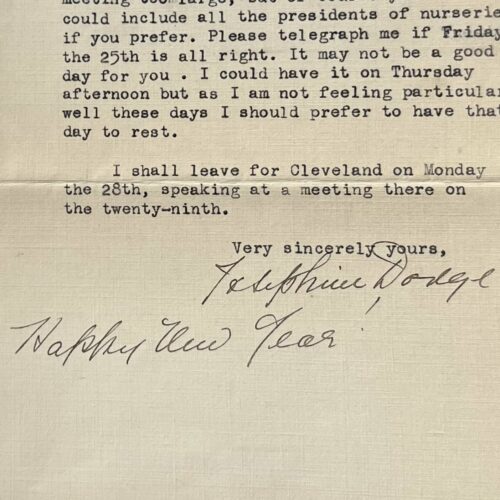 could include all the presidents of nurserie
if you prefer. Please telegraph me if Friday
the 25th is all right. It may not be a good
day for you . I could have it on Thursday
afternoon but as I am not feeling particular
well these days I should prefer to have that
day to rest.
I shall leave for Cleveland on Monday
the 28th, speaking at a meeting there on
the twenty-ninth.
Very sincerely yours,
Josephine Dodge
Happy New Year!